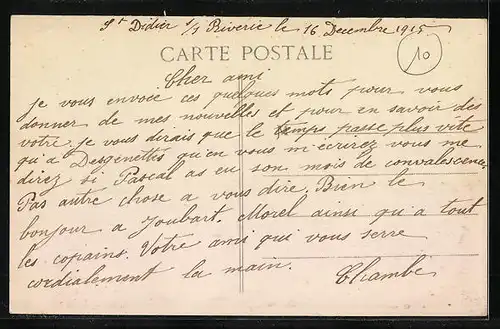 St Didier s/s Riverie le 16 Decembre 1915
CARTE POSTALE
10
Cher ami
Je vous envoie ces quelques mots pour vous
donner de mes nouvelles et pour en savoir des
votre. je vous dirais que le temps passe plus vite
qu'a Desgenettes qu'en vous m'ecrirez vous me
direz si Pascal as eu son mois de convalescence
Pas autre chose a vous dire. Bien le
bonjour a Joubart. Morel ainsi qu'a tout
les copains. Votre ami qui vous serre
cordialement la main.
Chambe